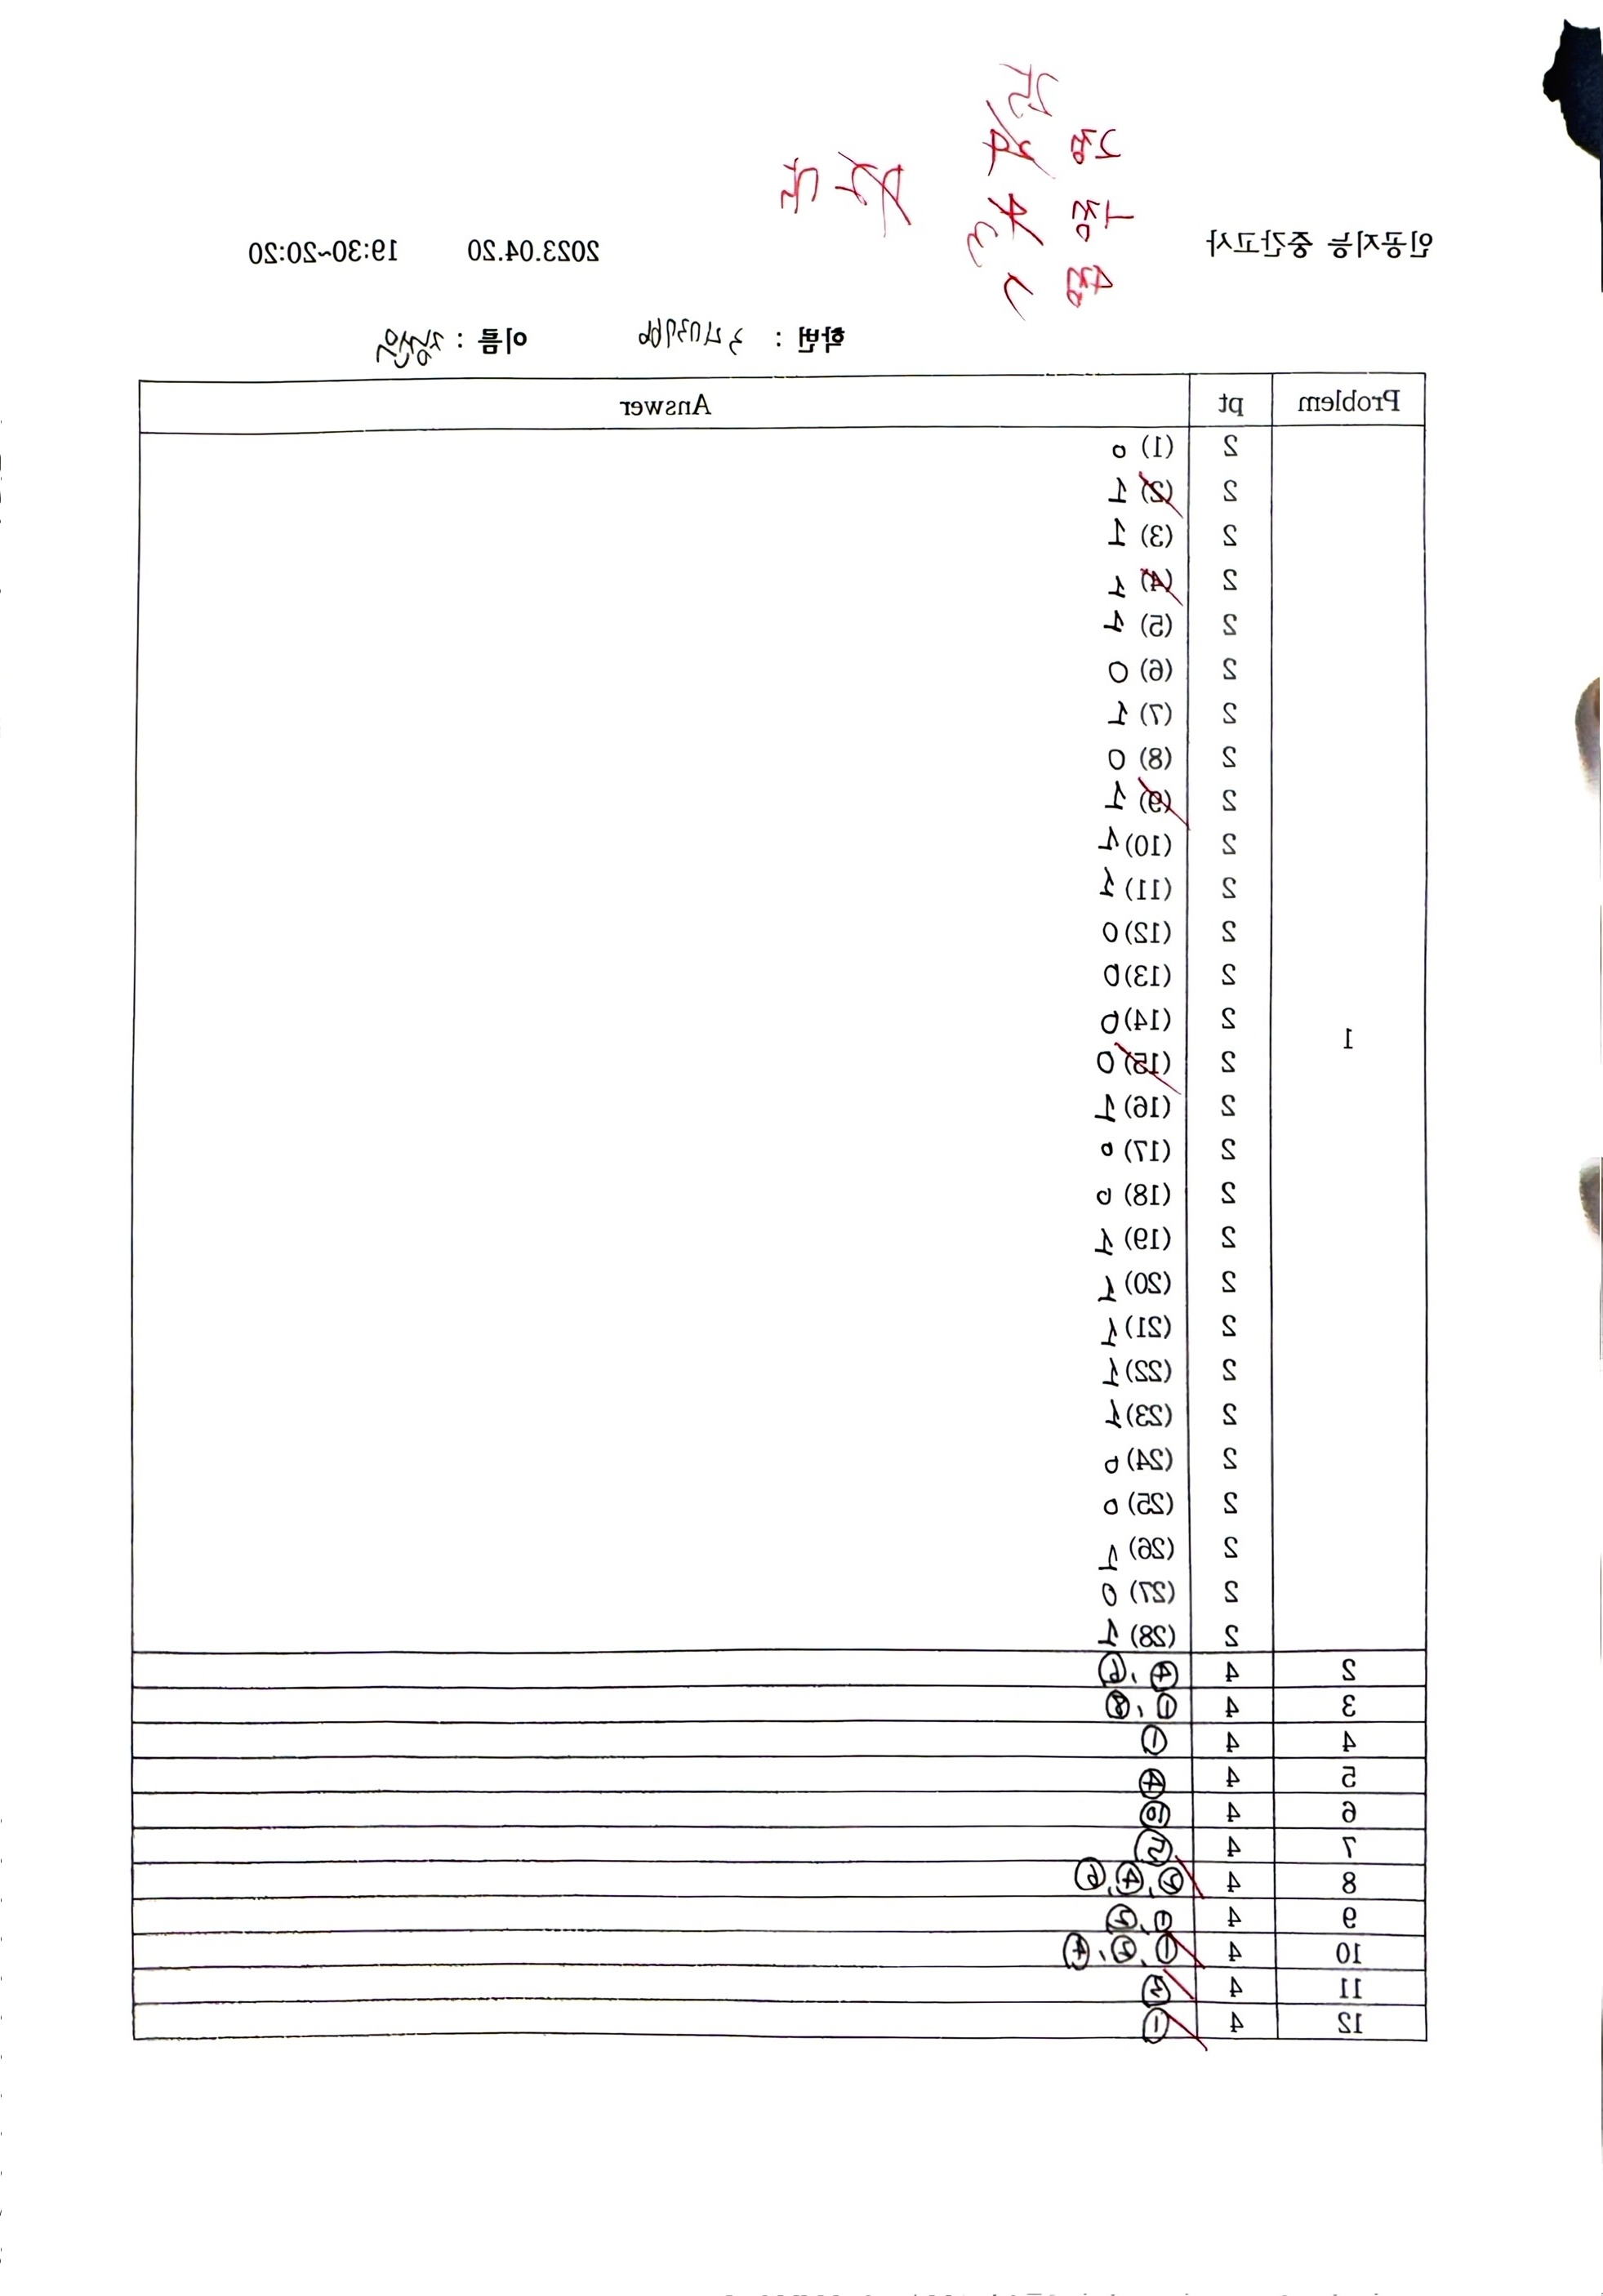 인공지능 중간고사 2023.04.20 19:30~20:20
학번 : 이름 :
Problem pt Answer
1
2 (1) 0
2 (2) 1
2 (3) 1
2 (4) 1
2 (5) 1
2 (6) 0
2 (7) 1
2 (8) 0
2 (9) 1
2 (10) 1
2 (11) 1
2 (12) 0
2 (13) 0
2 (14) 0
2 (15) 0
2 (16) 1
2 (17) 0
2 (18) 0
2 (19) 1
2 (20) 1
2 (21) 1
2 (22) 1
2 (23) 1
2 (24) 0
2 (25) 0
2 (26) 1
2 (27) 0
2 (28) 1
2 4 ④, ⑥
3 4 ①, ⑧
4 4 ①
5 4 ④
6 4 ⑩
7 4
8 4 ④, ⑥
9 4 ①,
10 4 ①, ④
11 4
12 4 ①